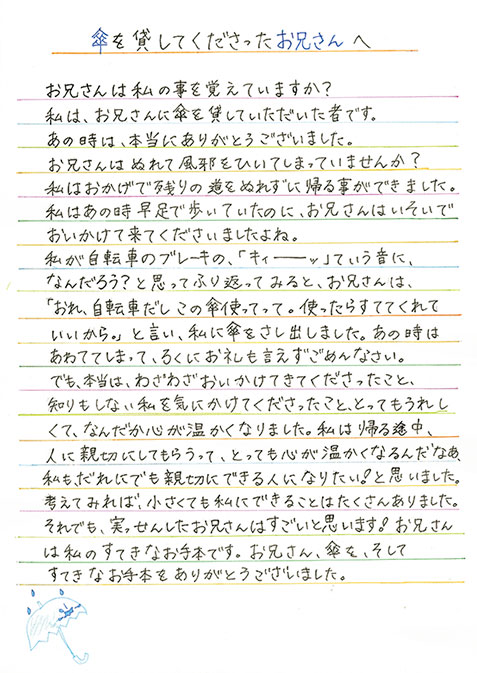 傘を貸してくださったお兄さんへ
お兄さんは私の事を覚えていますか？
私は、お兄さんに傘を貸していただいた者です。
あの時は、本当にありがとうございました。
お兄さんはぬれて風邪をひいてしまっていませんか？
私はおかげで残りの道をぬれずに帰る事ができました。
私はあの時早足で歩いていたのに、お兄さんはいそいで
おいかけて来てくださいましたよね。
私が自転車のブレーキの、「キィーーッ」ていう音に、
なんだろう？と思ってふり返ってみると、お兄さんは、
「おれ、自転車だしこの傘使ってって。使ったらすててくれて
いいから。」と言い、私に傘をさし出しました。あの時は
あわててしまって、ろくにお礼も言えずごめんなさい。
でも、本当は、わざわざおいかけてきてくださったこと、
知りもしない私を気にかけてくださったこと、とってもうれし
くて、なんだか心が温かくなりました。私は帰る途中、
人に親切にしてもらうって、とっても心が温かくなるんだなあ、
私もだれにでも親切にできる人になりたい！と思いました。
考えてみれば、小さくても私にできることはたくさんありました。
それでも、実っせんしたお兄さんはすごいと思います！お兄さん
は私のすてきなお手本です。お兄さん、傘を、そして
すてきなお手本をありがとうございました。